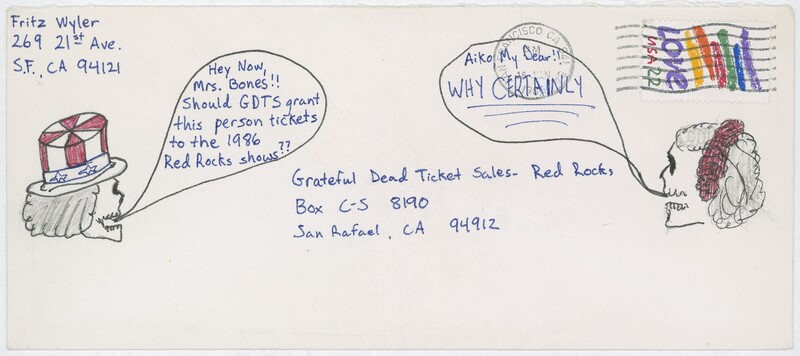 Fritz Wyler
269 21st Ave.
S.F., CA 94121
Hey Now,
Mrs. Bones!!
Should GDTS grant
this person tickets
to the 1986
Red Rocks shows??
Aiko My Dear!!!
WHY CERTAINLY
SAN FRANCISCO CA
PM
LOVE
USA 22
Grateful Dead Ticket Sales- Red Rocks
Box C-S 8190
San Rafael, CA 94912